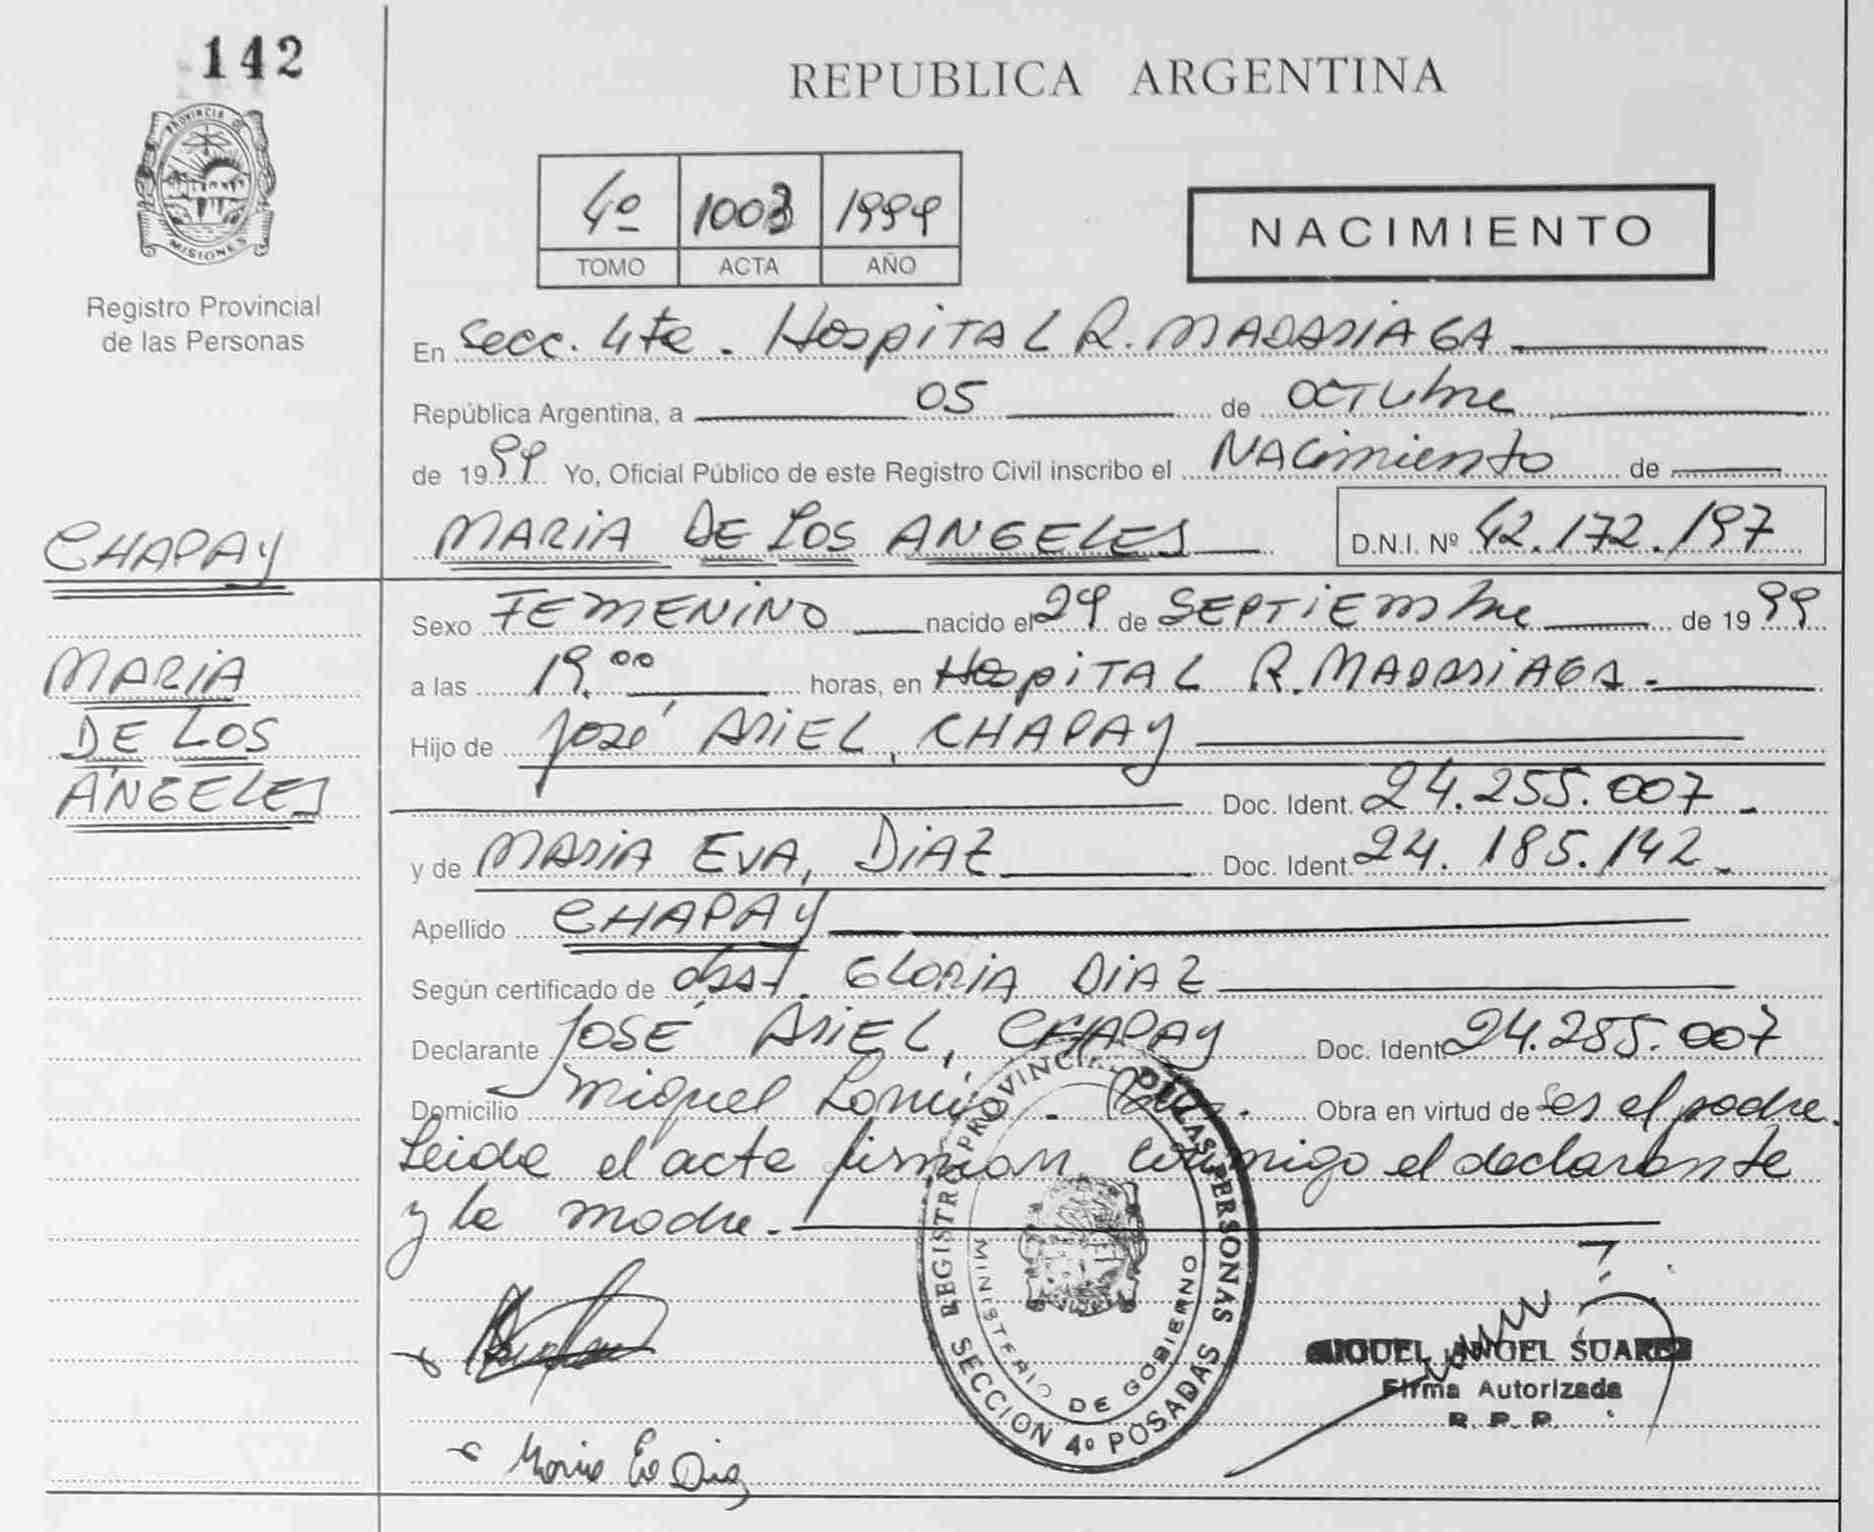 142
PROVINCIA DE
MISIONES
Registro Provincial
de las Personas
CHAPAY
MARIA
DE LOS
ANGELES
REPUBLICA ARGENTINA
4º 1003 1999
TOMO ACTA AÑO
NACIMIENTO
En Secc. 4ta. Hospital R. MADARIAGA
República Argentina, a 05 de octubre
de 1999 Yo, Oficial Público de este Registro Civil inscribo el Nacimiento de
MARIA DE LOS ANGELES D.N.I. Nº 42.172.197
Sexo FEMENINO nacido el 29 de SEPTIEMbre de 1999
a las 19.00 horas, en Hospital R. MADARIAGA.
Hijo de José ARIEL, CHAPAY
Doc. Ident. 24.255.007.
y de MARIA EVA, DIAZ Doc. Ident. 24.185.142.
Apellido CHAPAY
Según certificado de obst. GLORIA DIAZ
Declarante JOSÉ ARIEL, CHAPAY Doc. Ident. 24.255.007
Domicilio Miguel Obra en virtud de ser el padre.
Leida el acta firman conmigo el declarante
y la madre.
REGISTRO PROVINCIAL DE LAS PERSONAS
MINISTERIO DE GOBIERNO
SECCION 4º POSADAS
MIGUEL ANGEL SUAREZ
Firma Autorizada
R. P. P.
Maria Eva Diaz